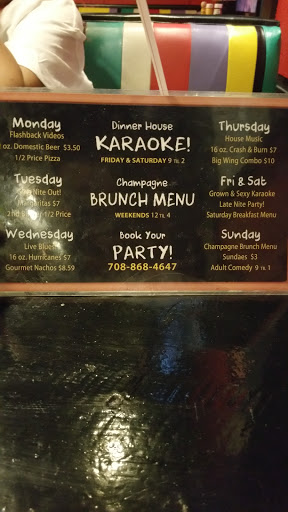 Monday
Flashback Videos
oz. Domestic Beer $3.50
1/2 Price Pizza
Tuesday
Nite Out!
Margaritas $7
2nd 1/2 Price
Wednesday
Live Blues
16 oz. Hurricanes $7
Gourmet Nachos $8.59
Dinner House
KARAOKE!
FRIDAY & SATURDAY 9 TIL 2
Champagne
BRUNCH MENU
WEEKENDS 12 TIL 4
Book Your
PARTY!
708-868-4647
Thursday
House Music
16 oz. Crash & Burn $7
Big Wing Combo $10
Fri & Sat
Grown & Sexy Karaoke
Late Nite Party!
Saturday Breakfast Menu
Sunday
Champagne Brunch Menu
Sundaes $3
Adult Comedy 9 TIL 1